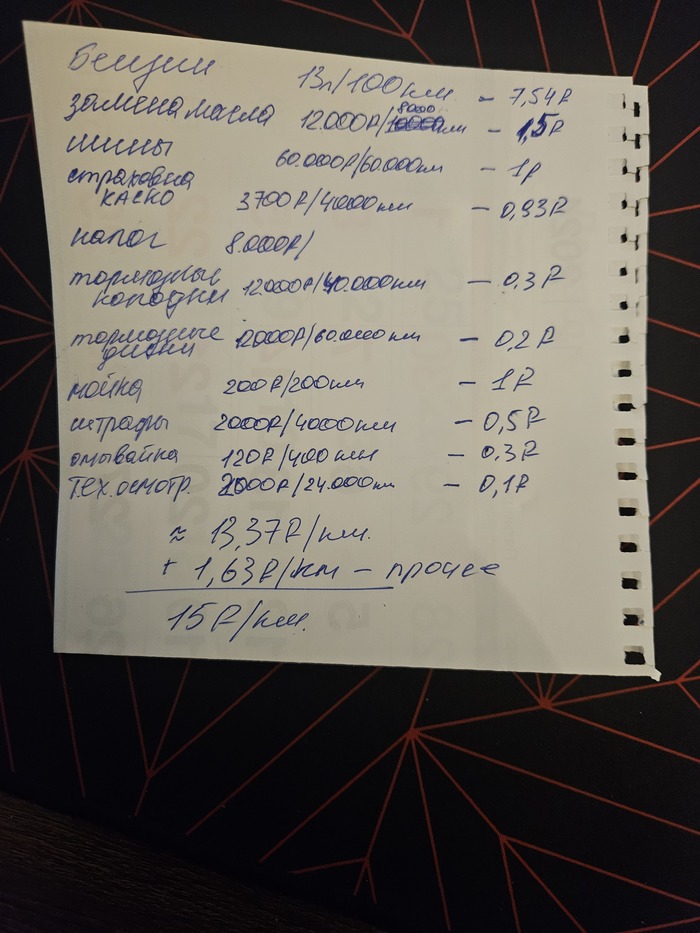 Бензин 13л/100км – 7,54₽
замена масла 12.000₽/8000км – 1,5₽
шины 60.000₽/60.000км – 1₽
страховка
КАСКО 3700₽/4000км – 0,93₽
налог 8.000₽/
тормозные
колодки 12.000₽/40.000км – 0.3₽
тормозные
диски 12000₽/60.000км – 0,2₽
мойка 200₽/200км – 1₽
штрафы 2000₽/4000км – 0,5₽
омывайка 120₽/400км – 0.3₽
Тех.осмотр. 2000₽/24.000км – 0,1₽
≈ 13,37₽/км.
+ 1,63₽/км – прочее
15₽/км.